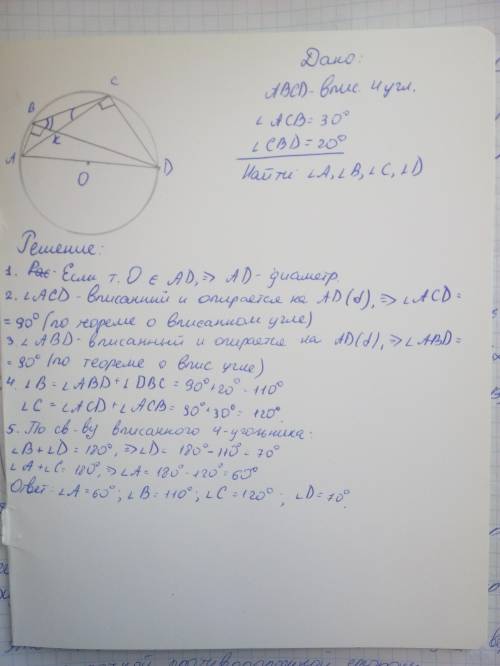 Дано:
ABCD-впис. 4 угл.
∠ACB = 30°
∠CBD = 20°
Найти: ∠A, ∠B, ∠C, ∠D
C
B
K
A
D
O
Решение:
1. Если т. O ∈ AD, ⇒ AD - диаметр.
2. ∠ACD - вписанний и опирается на AD(d), ⇒ ∠ACD =
= 90° (по теореме о вписанном угле)
3. ∠ABD - вписанный и опирается на AD(d), ⇒ ∠ABD =
= 90° (по теореме о впис угле)
4. ∠B = ∠ABD + ∠DBC = 90° + 20° = 110°
∠C = ∠ACD + ∠ACB = 90° + 30° = 120°.
5. По св-ву вписанного 4-угольника:
∠B + ∠D = 180°, ⇒ ∠D = 180° - 110° = 70°
∠A + ∠C = 180°, ⇒ ∠A = 180° - 120° = 60°
Ответ: ∠A = 60°; ∠B = 110°; ∠C = 120°; ∠D = 70°.